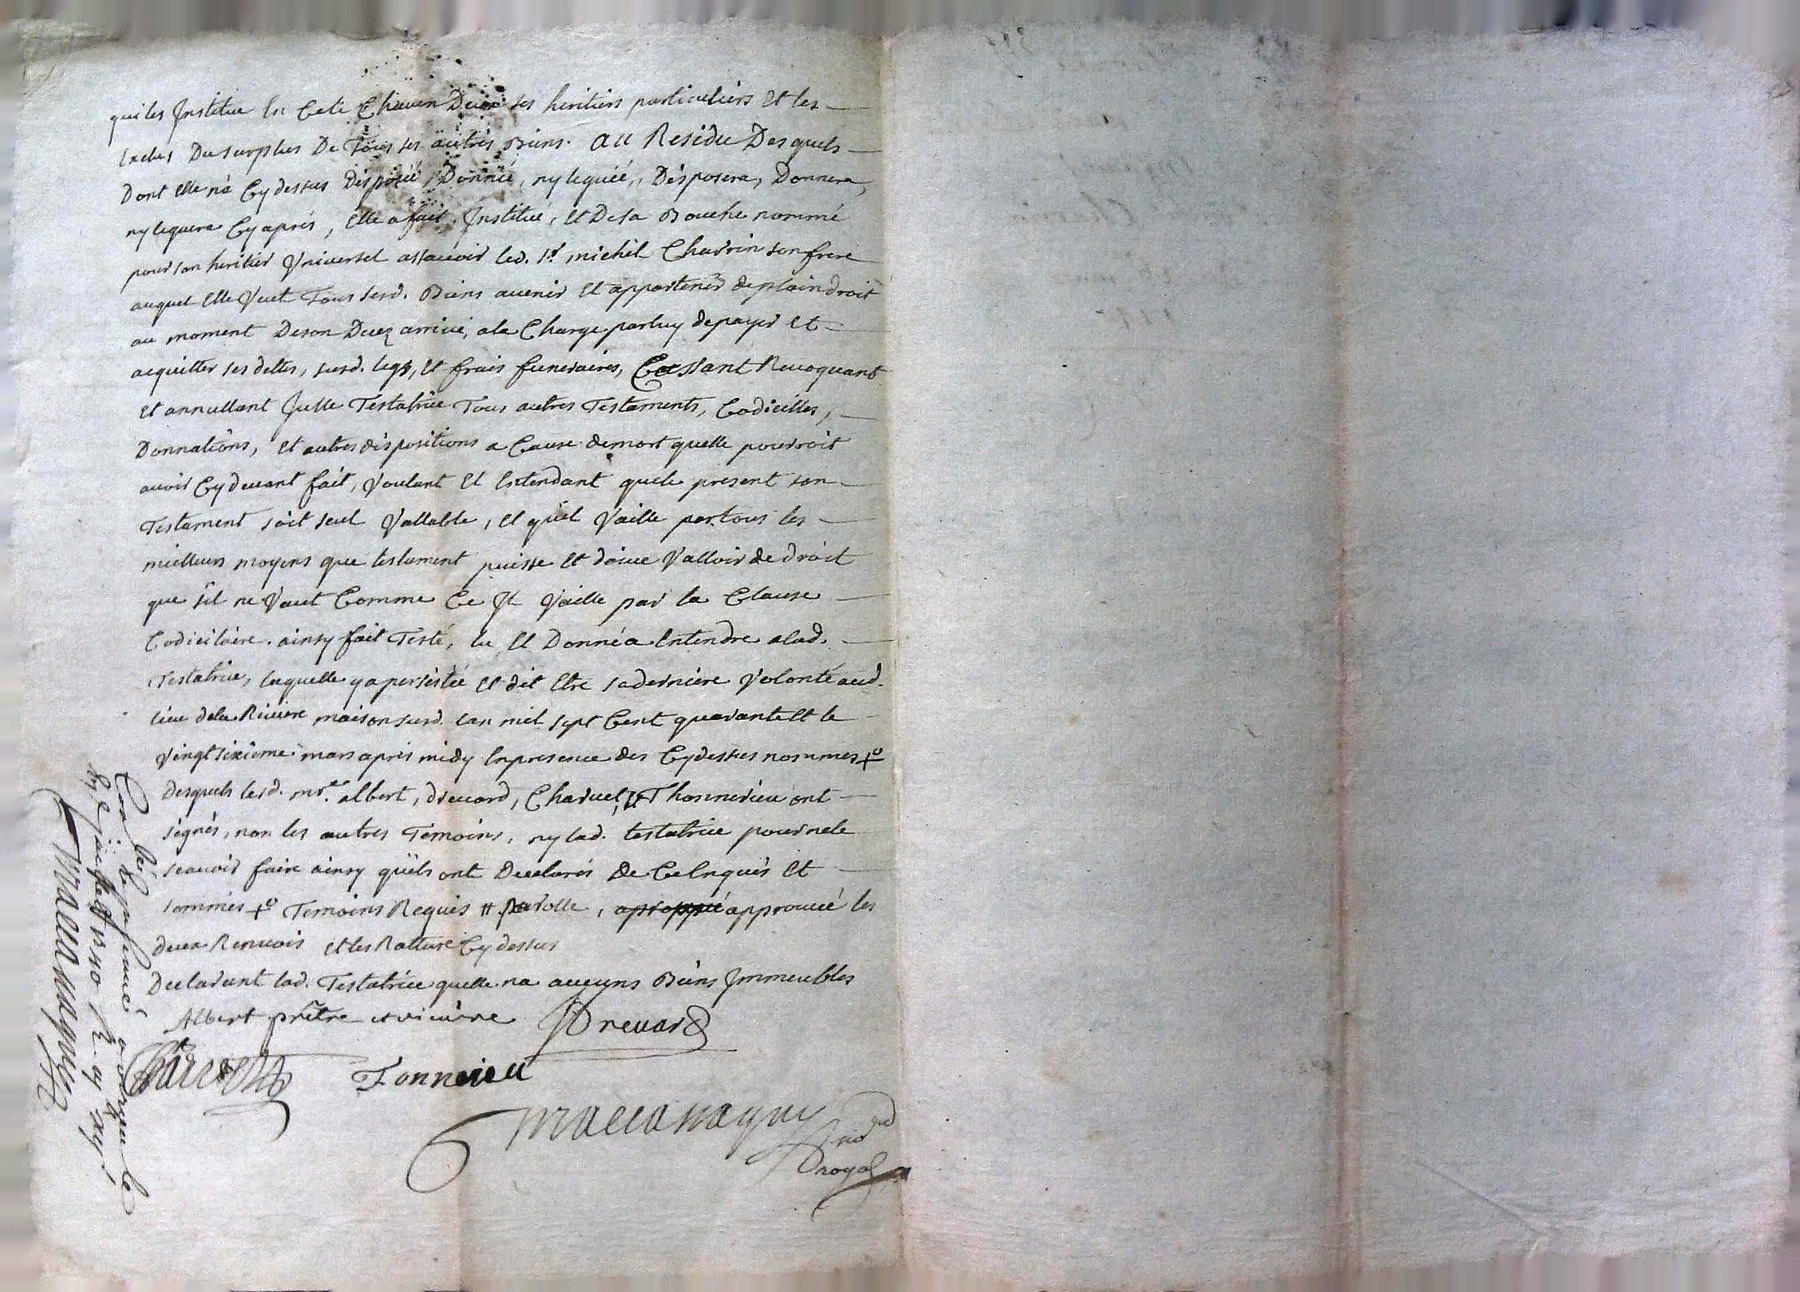 qui les Institue en Cete Chacun Deux ses heritiers particuliers Et les
Exclus Du surplus De Tous ses autres Biens. AU Residu Desquels
Dont Elle n'a Cy dessus Disposé, Donnée, ny leguéé, Disposera, Donnera,
ny leguera Cy aprés, Elle a fait, Institué, Et De sa Bouche nommé
pour son heritier Vniversel assavoir led. Sr. michel Charvin son frere
auquel Elle Veut Tous sesd. Biens avenir Et appartenir de plain droit
au moment De son Decez arrivé, a la Charge par luy de payer Et
acquitter ses dettes, susd. legs, Et frais funeraires, Cassant Revoquant
Et annullant Jcelle Testatrice Tous autres Testaments, Codicilles,
Donnations, Et autres dispositions a Cause de mort quelle pourroit
avoir Cy devant fait, Voulant Et Entendant que le present son
Testament soit seul Vallable, Et quil Vaille par tous les
meilleurs moyens que testament puisse Et doive Valloir de droit
que sil ne Vaut Comme Ce Jl Vaille par la Clause
Codicilaire. ainsy fait Testé, lu Et Donné a Entendre a lad.
Testatrice, laquelle y a persistée Et dit Etre sa derniere Volonté aud.
lieu de la Riviere maison susd. Lan mil sept Cent quarante Et le
Vingt sixieme mars aprés midy En presence des Cydessus nommés +o
desquels lesd. mre. albert, drevard, Charvet, Et Thonnerieu ont
signés, non les autres Temoins, ny lad. testatrice pour ne le
scavoir faire ainsy quils ont Declarés de Ce Enquis Et
sommés +o Temoins Requis # parolle, approuvée les
deux Renvois et les Rature Cy dessus
Declarant lad. Testatrice quelle na aucuns Biens Jmmeubles
Albert prêtre et vicaire Drevard
Charvet Tonnerieu
Maccanaguy
Nore
Royal
Con.lé